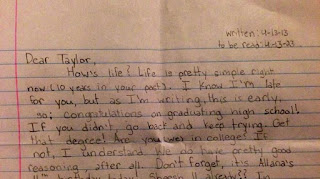 written: 4-13-13
to be read: 4-13-23
Dear Taylor,
How's life? Life is pretty simple right
now (10 years in your past). I know I'm late
for you, but as I'm writing, this is early,
so: congratulations on graduating high school!
If you didn't, go back and keep trying. Get
that degree! Are you in college? If
not, I understand. We do have pretty good
reasoning, after all. Don't forget, it's Allana's
birthday today! Sharon already?! In